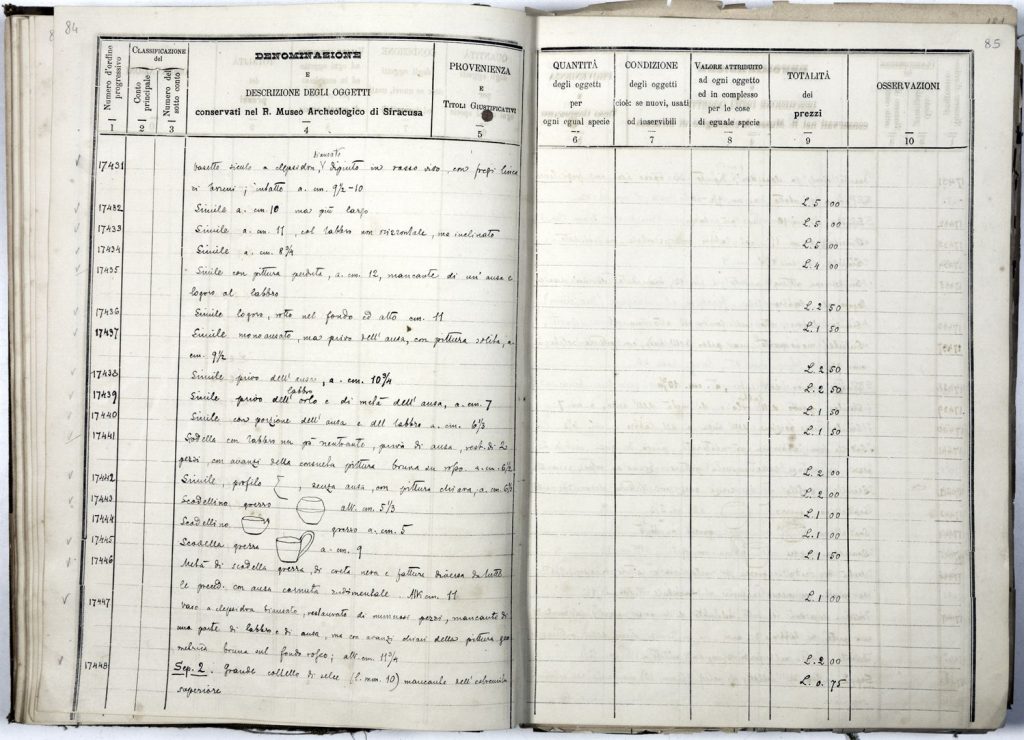 84
Numero d'ordine progressivo
CLASSIFICAZIONE del
Conto principale
Numero del sotto conto
DENOMINAZIONE
E
DESCRIZIONE DEGLI OGGETTI
conservati nel R. Museo Archeologico di Siracusa
PROVENIENZA
E
TITOLI GIUSTIFICATIVI
1 2 3 4 5
biansato
17431 Vasetto siculo a clepsidra, dipinto in rosso vivo, con fasci linee
; intatto a. cm. 9 1/2 - 10
17432 Simile a. cm. 10 ma più largo
17433 Simile a. cm. 11, col labbro non orizzontale, ma inclinato
17434 Simile a. cm. 8 3/4
17435 Simile con pittura perduta, a. cm. 12, mancante di un'ansa e
logoro al labbro
17436 Simile logoro, rotto nel fondo ed alto cm. 11
17437 Simile monoansato, ma privo dell'ansa, con pittura solita, a.
cm. 9 1/2
17438 Simile privo dell'ansa, a. cm. 10 3/4
labbro
17439 Simile privo dell'orlo e di metà dell'ansa, a. cm. 7
17440 Simile con porzione dell'ansa e del labbro a. cm. 6 1/3
17441 Scodella con labbro un pò rientrante, priva di ansa, rest. di 2
pezzi, con avanzi della consueta pittura bruna su rosso. a. cm. 6 1/2
17442 Simile, profilo , senza ansa, con pittura chiara, a. cm. 6 1/3
17443 Scodellino grezzo alt. cm. 5 1/3
17444 Scodellino grezzo a. cm. 5
17445 Scodella grezza a. cm. 9
17446 Metà di scodella grezza, di creta nera e fattura diversa da tutte
le preced. con ansa cornuta rudimentale. Alt. cm. 11
17447 Vaso a clepsidra biansato, restaurato di numerosi pezzi, mancante di
una parte di labbro e di ansa, ma con avanzi chiari della pittura geo
metrica bruna sul fondo rosso; alt. cm. 11 3/4
17448 Sep. 2. Grande coltello di selce (l. mm. 10) mancante dell'estremità
superiore
85
QUANTITÀ
degli oggetti
per
ogni egual specie
CONDIZIONE
degli oggetti
cioè: se nuovi, usati
od inservibili
VALORE ATTRIBUITO
ad ogni oggetto
ed in complesso
per le cose
di eguale specie
TOTALITÀ
dei
prezzi
OSSERVAZIONI
6 7 8 9 10
L. 5 00
L. 5 00
L. 5 00
L. 4 00
L. 2 50
L. 1 50
L. 2 50
L. 2 50
L. 1 50
L. 1 50
L. 2 00
L. 2 00
L. 1 00
L. 1 00
L. 1 50
L. 1 00
L. 2 00
L. 0. 75